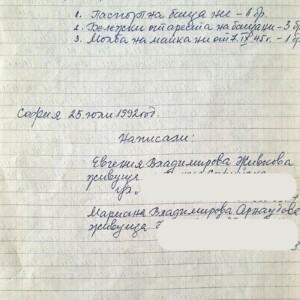 1. Паспорт на баща ни – 1 бр.
2. Бележки от ареста на баща ни – 3 бр
3. Молба на майка ни от 7.IX 45 г. – 1 бр
София 25 юли 1992 год.
Написали:
Евгения Владимирова Живкова
живуща
ул.
Мариана Владимирова Арнаудова
живуща